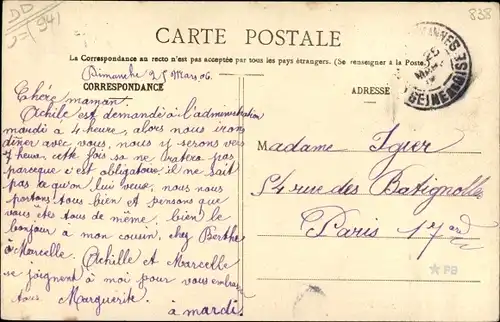 DD
(94)
838
CARTE POSTALE
La Correspondance au recto n'est pas acceptée par tous les pays étrangers. (Se renseigner à la Poste.)
Dimanche 25 Mars 06.
CORRESPONDANCE
ADRESSE
Chére maman.
Achile est demandé à l'administration
mardi a 4 heure, alors nous irons
diner avec vous, nous y serons vers
7 heure, cette fois sa ne ratera pas
parceque c'est obligatoire, il ne sait
pas a qu'on lui veue, nous nous
portons tous bien et pensons que
vous etes tous de même, bien le
bonjour a mon cousin, chez Berthe
a Marcelle. Achille et Marcelle
se joignent à moi pour vous embrass
tous. Marguerite.
à mardi
Madame Igier
54 rue des Batignolles
Paris 17
SEINE ET OISE
PB